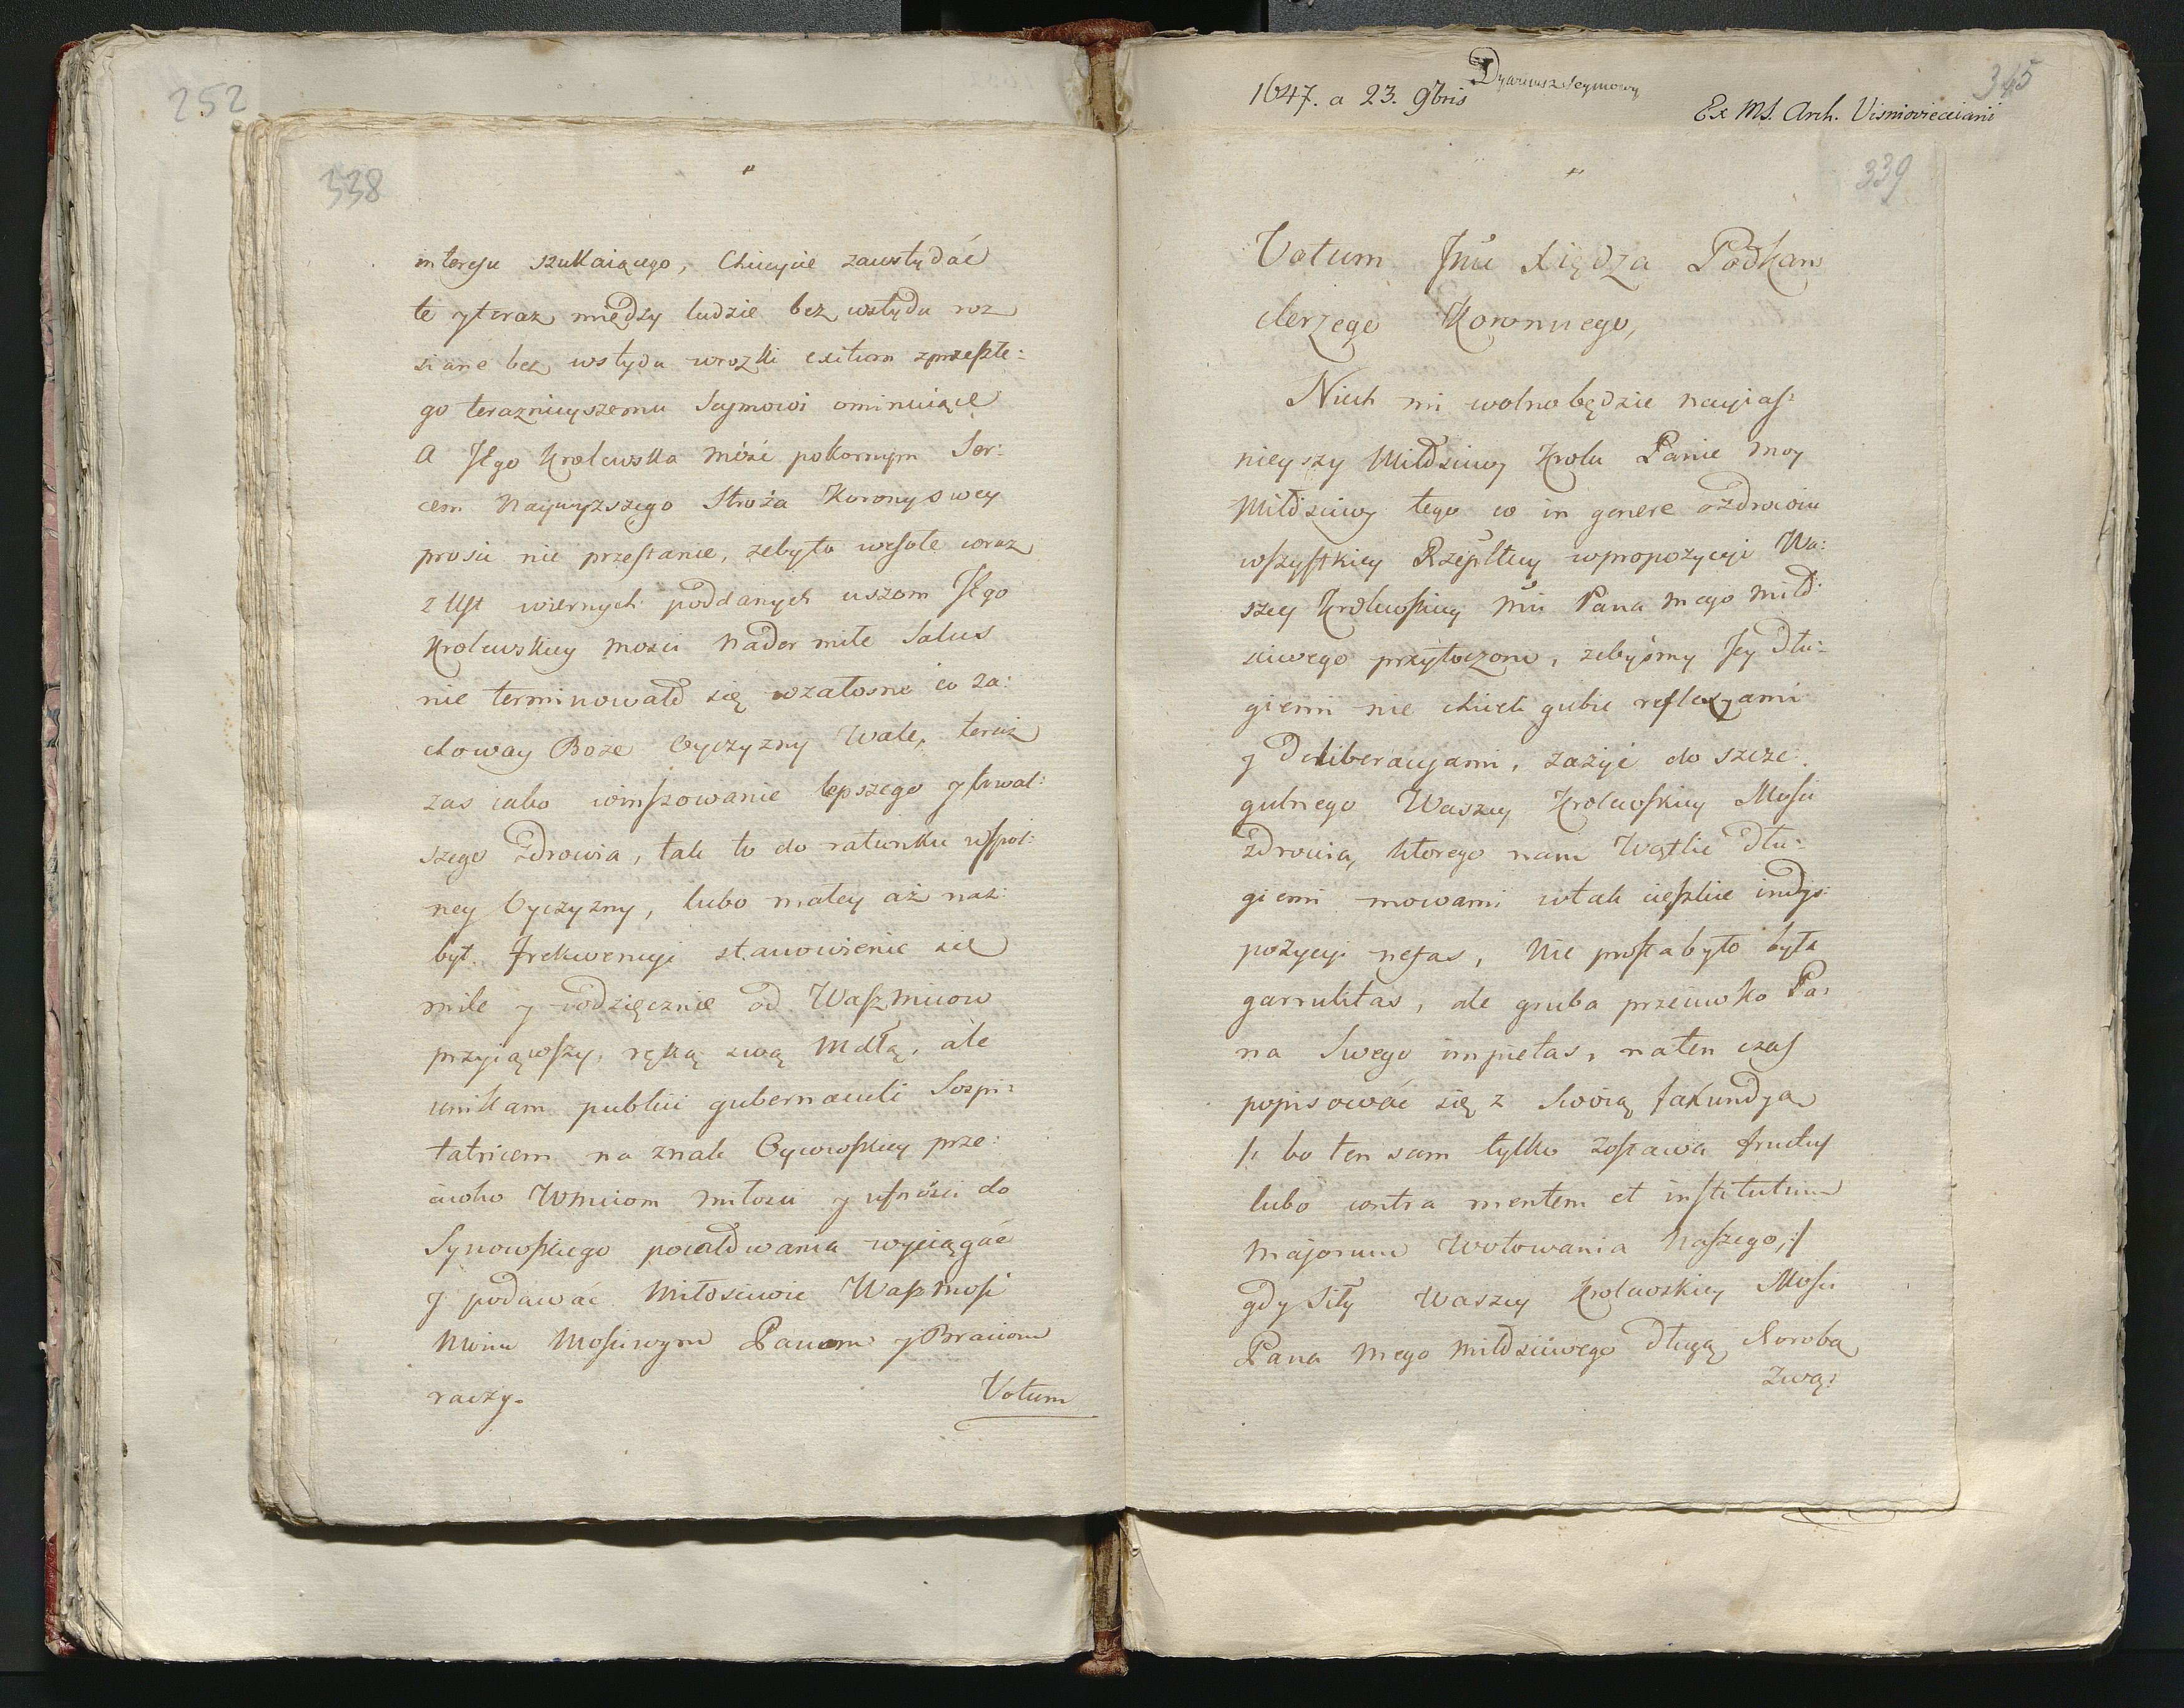 252
338
interesu szukaiącego, Chcieycie zawstydać
te y teraz między ludzie bez wstydu roz
siane bez wstydu wrozki exitum zprzeszłe:
go teraznieyszemu Seymowi ominuiące
A Jego Krolewska Mość pokornym Ser:
cem Naywyzszego Stroża Korony swey
prosić nie przestanie, zeby to wesołe wraz
z Ust wiernych poddanych uszom Jego
Krolewskiey Mości nader miłe Salus
nie terminowało się wzałosne co za:
choway Boze Oyczyzny Vale, teraz
zas iako winszowanie lepszego y trwal:
szego Zdrowia, tak to do ratunku wspol:
ney Oyczyzny, lubo małey aż naz:
byt. Frekwencyi stanowienie się
mile y wdzięcznie od Waszmciow
przyiąwszy, ręką swą Mdłą, ale
unikam publici gubernaculi Sospi:
tatricem na znak Oycowskiey prze:
ciwko Wmciom miłości y ufności do
Synowskiego pocałowania wyciągać
y podawać Miłościwie Waszmosc
Moim Mościwym Panom y Braciom
raczy.
Votum
1647. a 23. 9bris
Dyariusz Seymowy
345
Ex MS. Arch. Visniovieciani
339
Votum Jmci Xiędza Podkan
clerzego Koronnego,
Niech mi wolno będzie nayias:
nieyszy Miłościwy Krolu Panie moy
Miłościwy tego co in genere o zdrowiu
wszystkiey Rzepltey wpropozycyi Wa:
szey Krolewskiey Mci Pana mego Miło:
sciwego przytoczono, zebyśmy Jey dłu:
giemi nie chcieli gubić reflexyami
y Deliberacyami, zażyć do szcze:
gulnego Waszey Krolewskiey Mości
Zdrowia, ktorego nam Wątlić dłu:
giemi mowami wtak cieszkie indys:
pozycyi nefas, Nie prosta by to była
garrulitas, ale gruba przeciwko Pa:
na Swego impietas, na ten czas
popisować się z Swoią fakundyą
/: bo ten sam tylko zostawa fructus
lubo contra mentem et institutum
Majorum Wotowania Naszego, :/
gdy siły Waszey Krolewskiey Mości
Pana Mego Miłościwego długą chorobą
Zwą: